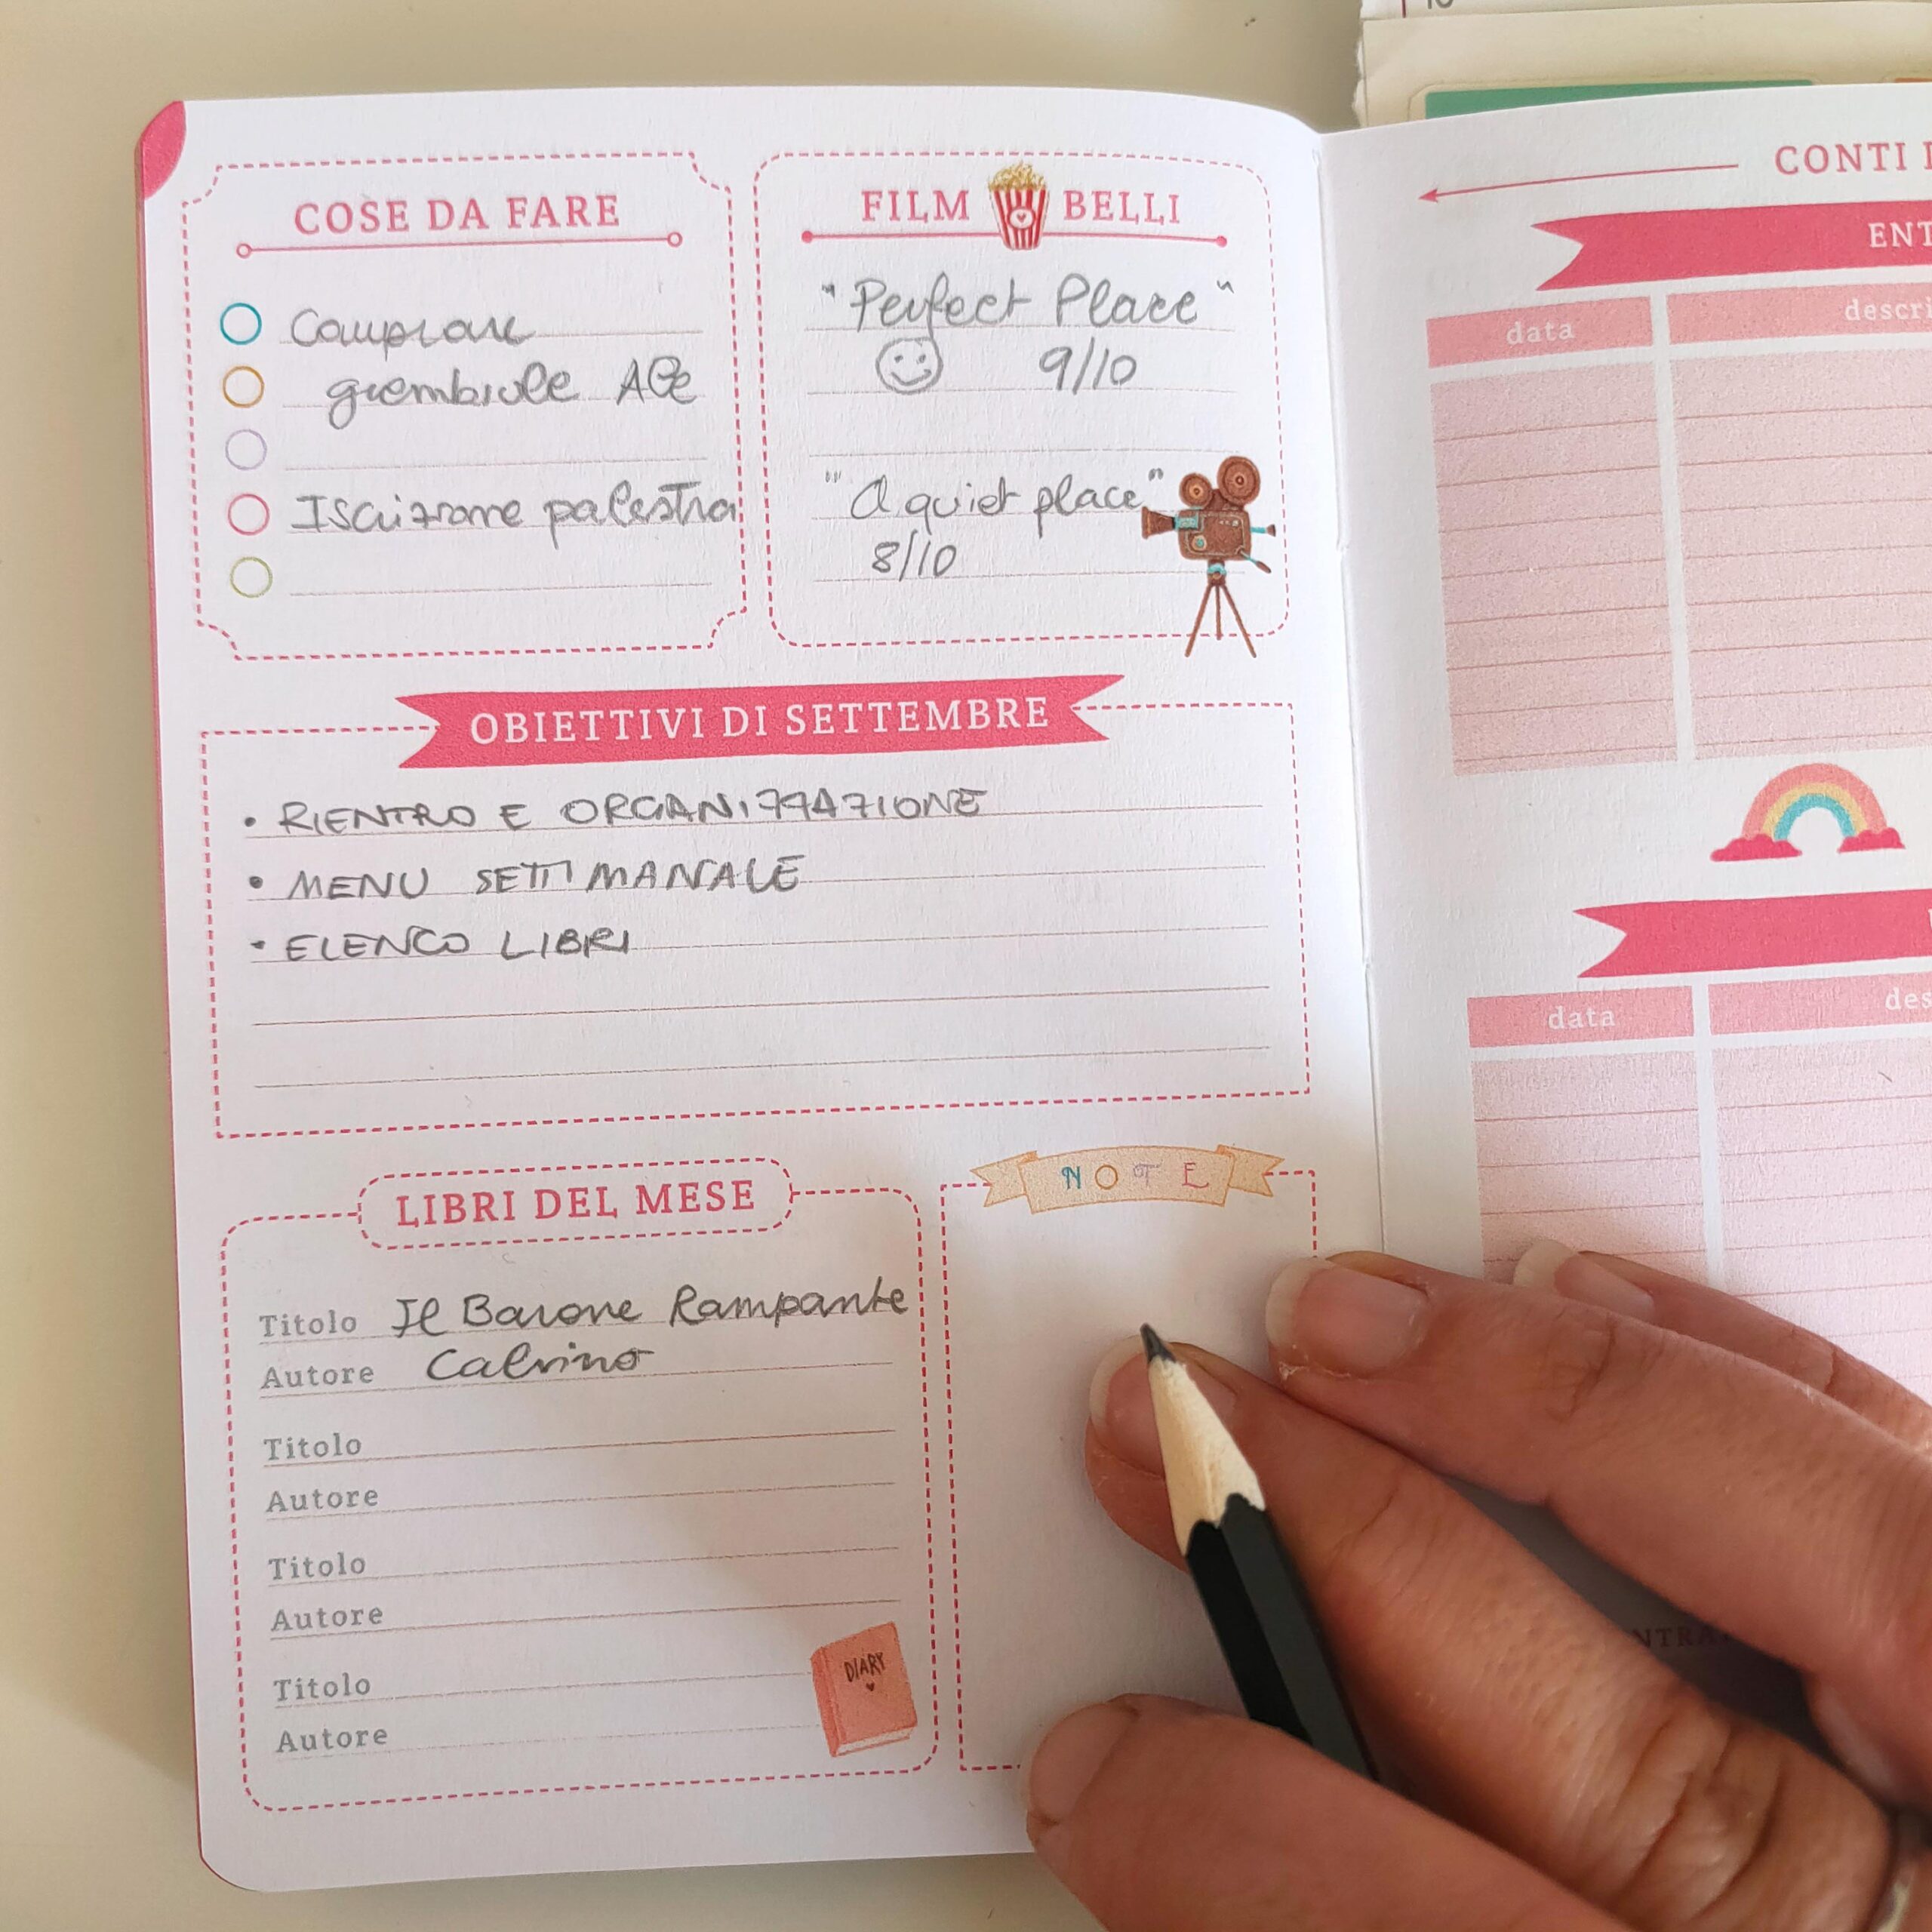 COSE DA FARE
Comprare
grembiule Ale
Iscrizione palestra
FILM BELLI
"Perfect Place"
9/10
"A quiet place"
8/10
OBIETTIVI DI SETTEMBRE
• RIENTRO E ORGANIZZAZIONE
• MENU SETTIMANALE
• ELENCO LIBRI
LIBRI DEL MESE
Titolo Il Barone Rampante
Autore Calvino
Titolo
Autore
Titolo
Autore
Titolo
Autore
DIARY
NOTE
CONTI
ENT
data descri
data des